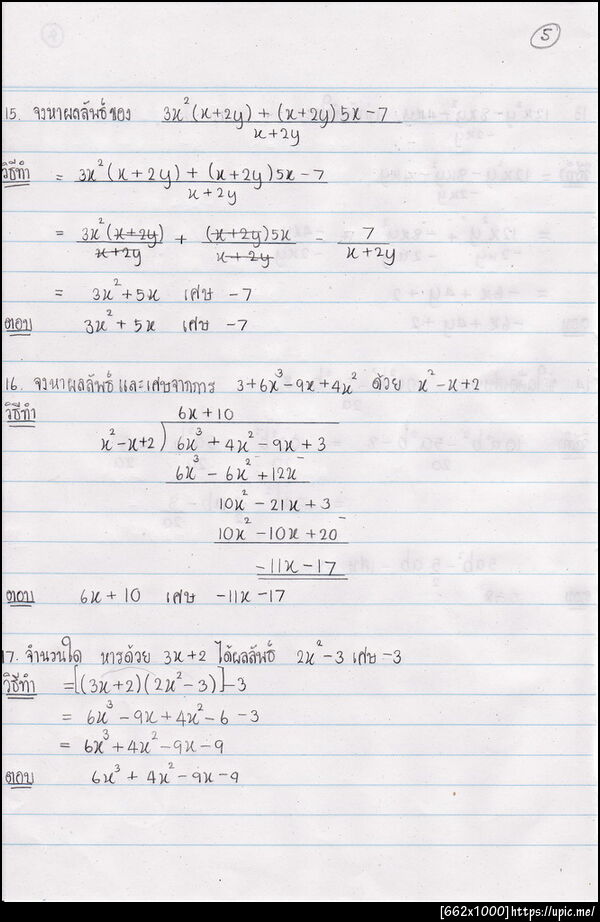 5
15. จงหาผลลัพธ์ของ 3x²(x+2y) + (x+2y)5x - 7
x+2y
วิธีทำ = 3x²(x+2y) + (x+2y)5x - 7
x+2y
= 3x²(x+2y) + (x+2y)5x - 7
x+2y x+2y x+2y
= 3x²+5x เศษ -7
ตอบ 3x²+5x เศษ -7
16. จงหาผลลัพธ์และเศษจากการ 3+6x³-9x+4x² ด้วย x²-x+2
วิธีทำ 6x+10
x²-x+2) 6x³+4x²-9x+3
6x³-6x²+12x
10x²-21x+3
10x²-10x+20
-11x-17
ตอบ 6x+10 เศษ -11x-17
17. จำนวนใด หารด้วย 3x+2 ได้ผลลัพธ์ 2x²-3 เศษ -3
วิธีทำ =[(3x+2)(2x²-3)]-3
= 6x³-9x+4x²-6-3
= 6x³+4x²-9x-9
ตอบ 6x³+4x²-9x-9
[662x1000]https://upic.me/